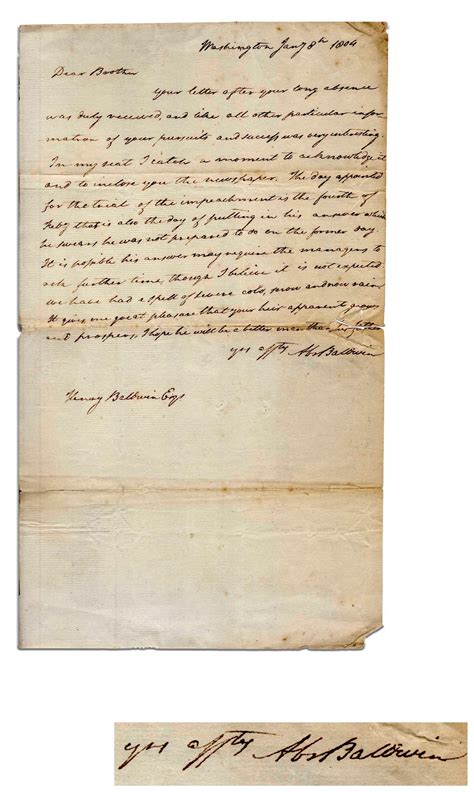 Washington Jany 8th 1804
Dear Brother
your letter after your long absence
was duly received, and like all other particular infor
mation of your pursuits and success was very interesting.
In my seat I catch a moment to acknowledge it
and to inclose you the newspaper. The day appointed
for the trial of the impeachment is the fourth of
Feby that is also the day of putting in his answer which
he swears he was not prepared to do on the former day
It is possible his answer may require the managers to
ask further time, though I believe it is not expected
we have had a spell of severe cold, snow and now rain
It gives me great pleasure that your heir apparent grows
and prospers, I hope he will be a better man than his father
yrs affty Abr Baldwin
Henry Baldwin Esqr
yrs affty Abr Baldwin